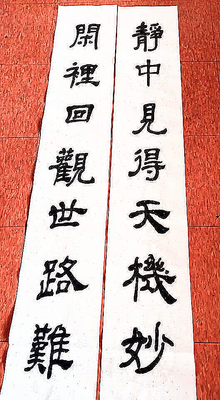 靜中見得天機妙
閑裡回觀世路難